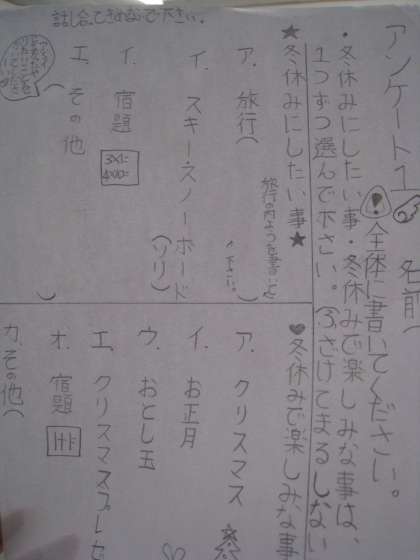 アンケート1 名前
!全体に書いてください。
・冬休みにしたい事・冬休みで楽しみな事は、
1つずつ選んで下さい。
さけてまるしない
★冬休みにしたい事★
ア. 旅行(
)
イ. スキースノーボード
(ソリ)
イ. 宿題
3×1=
エ. その他
)
話し合いできめないで下さい。
♥冬休みで楽しみな事
ア. クリスマス
イ. お正月
ウ. おとし玉
エ. クリスマスプレゼ
オ. 宿題
カ. その他(